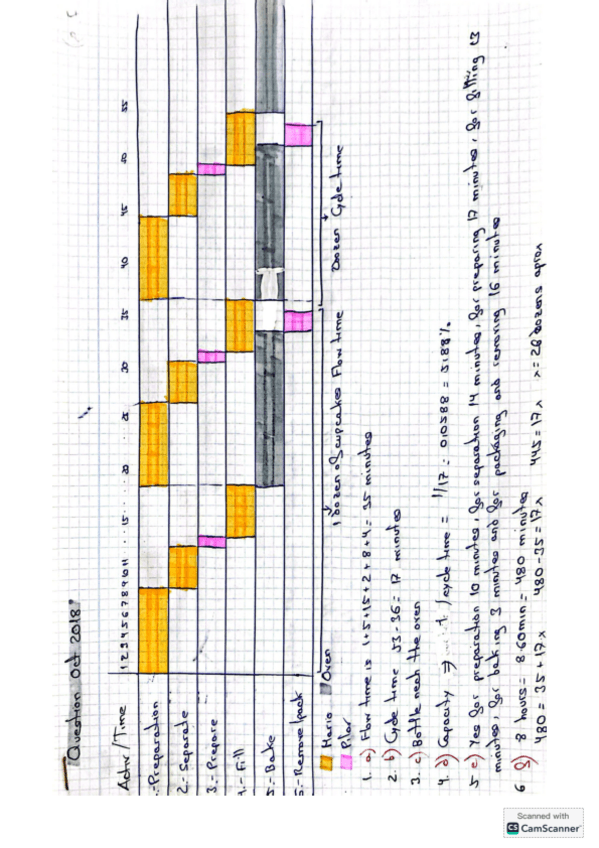 Question Oct 2018
Activ / Time
1 2 3 4 5 6 7 8 9 10 11 . . . 15 . . . . 20 . . . 25 . . 30 35 40 45
1.-Preparation
2.-Separate
3.-Prepare
4.-Fill
5.-Bake
5.-Remove/pack
Mario
Oven
Pilar
1 dozen of cupcakes Flow time
Dozen Cycle time
1. a) Flow time is 1+5+15+2+8+4 = 35 minutes
2. b) Cycle time 53-36 = 17 minutes
3. c) Bottle neck the oven
4. d) Capacity ⇒ / cycle time = 1/17 = 0'0588 = 5'88%
5 e) Yes for preparation 10 minutes, for separation 14 minutes, for preparing 17 minutes, for filling 13
minutes, for baking 3 minutes and for packaging and removing 16 minutes
6 g) 8 hours = 8·60min = 480 minutes
480 = 35 + 17x 480-35 = 17x 445 = 17x x = 26 dozens aprox
Scanned with
CS CamScanner